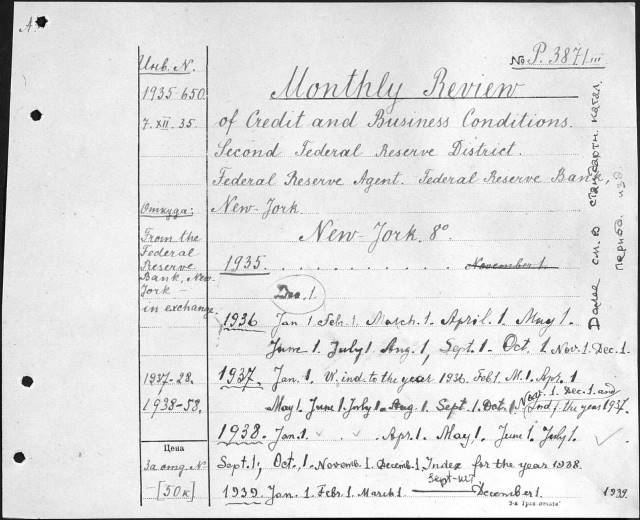 A.
№ P. 3871/III
Инв. N.
1935-650
7. XII. 35.
Monthly Review
of Credit and Business Conditions.
Second Federal Reserve District.
Federal Reserve Agent. Federal Reserve Bank,
New-York.
New-York, 8°
Откуда:
From the
Federal
Reserve
Bank, New
York —
in exchange
1935. . . . . . . . . . . November 1.
Dec. 1.
1936 Jan 1. Feb. 1. March. 1. April. 1. May 1.
June 1. July 1. Aug. 1, Sept. 1. Oct. 1. Nov. 1. Dec. 1.
1937-28.
1937. Jan. 1. W. ind. to the year 1936. Feb 1. M. 1. Apr. 1.
1938-58.
May 1. June 1. July 1. Aug. 1. Sept. 1. Oct. 1. Nov. 1. Dec. 1. and Ind. f. the year 1937.
1938. Jan. 1. Apr. 1. May 1. June 1. July 1.
Цена
За отд. №
[50 к]
Sept. 1, Oct. 1. Novemb. 1. Decemb. 1. Index for the year 1938.
1939. Jan. 1. Febr. 1. March 1. Sept- December 1. 1939.
Далее см. в стандартн. катал.
период. изд.